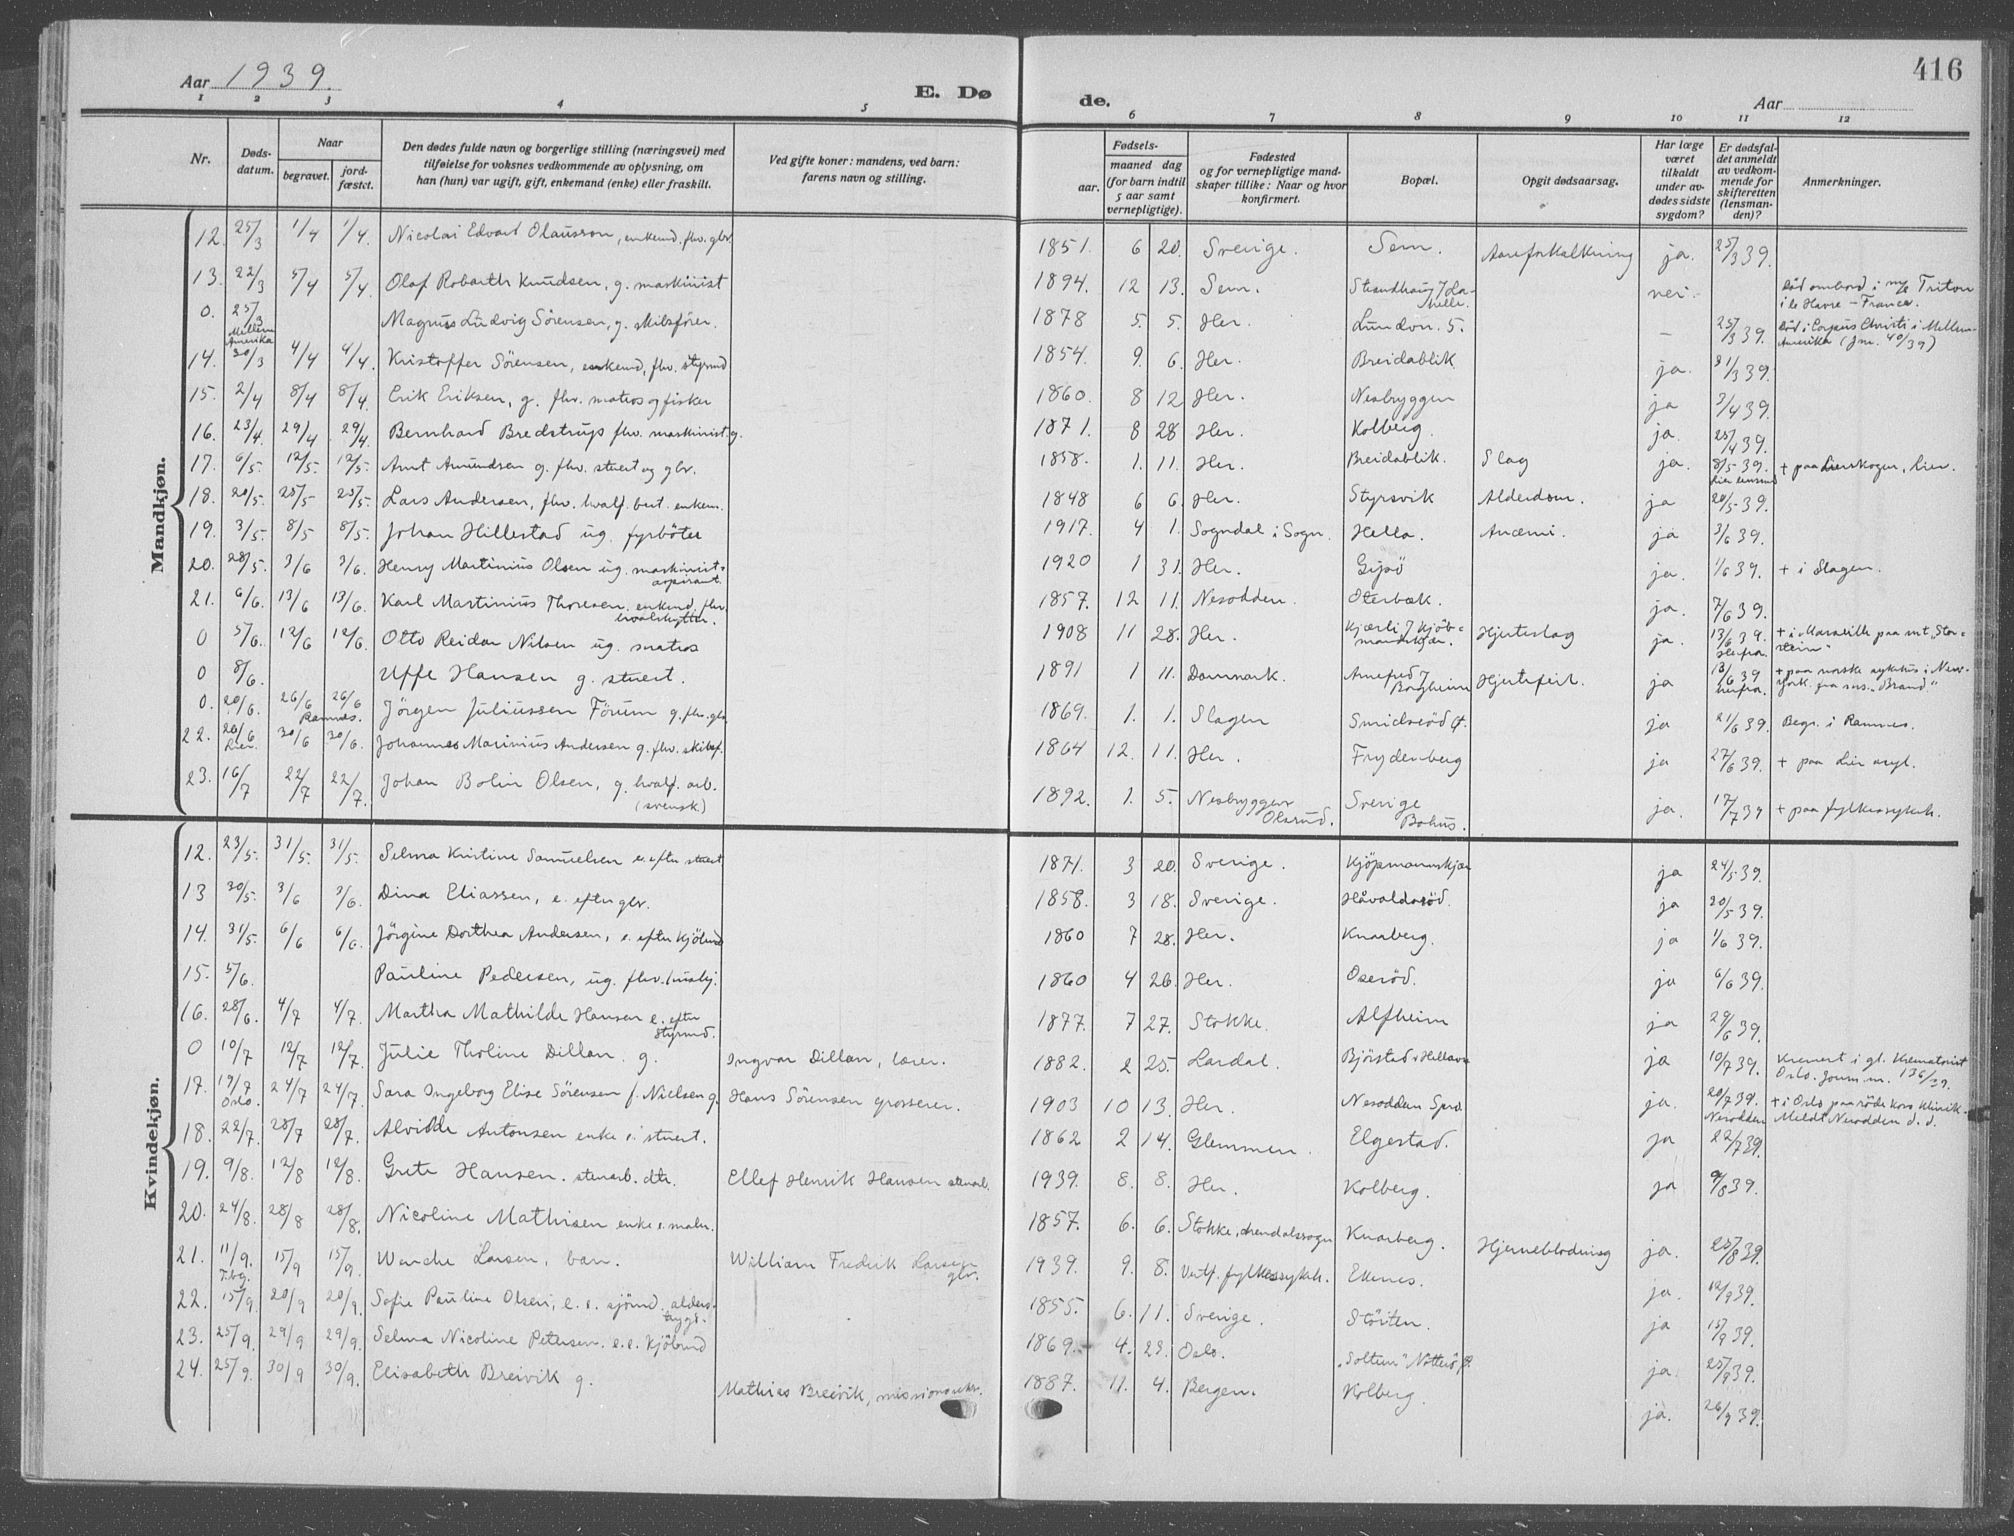 416
Aar 1939.
E. Døde.
Aar
1 2 3 4 5 6 7 8 9 10 11 12
Nr.
Døds-
datum.
Naar
begravet.
jord-
fæstet.
Den dødes fulde navn og borgerlige stilling (næringsvei) med
tilføielse for voksnes vedkommende av oplysning, om
han (hun) var ugift, gift, enkemand (enke) eller fraskilt.
Ved gifte koner: mandens, ved barn:
farens navn og stilling.
Fødsels-
aar.
maaned dag
(for barn indtil
5 aar samt
vernepligtige).
Fødested
og for vernepligtige mand-
skaper tillike: Naar og hvor
konfirmert.
Bopæl.
Opgit dødsaarsag.
Har læge
været
tilkaldt
under av-
dødes sidste
sygdom?
Er dødsfal-
det anmeldt
av vedkom-
mende for
skifteretten
(lensman-
den)?
Anmerkninger.
Mandkjøn.
12. 25/3 1/4 1/4. Nicolai Edvard Olausson, enkemd. fhv. gbr. 1851. 6 20. Sverige. Sem. Aareforkalkning ja. 25/3 39.
13. 22/3 5/4 5/4. Olaf Robarth Knudsen, g. maskinist 1894. 12 13. Sem. nei. Død ombord i m/s Triton
i le Havre – France.
0. 25/3 Mellem Amerika Magnus Ludvig Sörensen, g. skibsfører. 1878 5. 5. Her. Lundon. 5. – 25/3 39. Død i Corpus Christi i Mellem-
Amerika (jnr. 40/39)
14. 30/3 4/4 4/4. Kristoffer Sörensen, enkemd, fhv. styrmd 1854. 9. 6. Her. Breidablik ja. 31/3 39.
15. 2/4 8/4 8/4. Erik Eriksen, g. fhv. matros og fisker 1860. 8 12 Her. Nesbryggen ja 3/4 39.
16. 23/4. 29/4 29/4. Bernhard Bredstrup fhv. maskinist. g. 1871. 8 28 Her. Kolberg. ja. 25/4 39.
17. 6/5. 12/5 12/5. Arnt Amundsen g. fhv. stuert og gbr. 1858. 1. 11. Her. Breidablik. Slag ja. 8/5 39. + paa Lierskogen, Lier.
18. 20/5. 25/5 25/5. Lars Andersen, fhv. hvalf. best. enkem. 1848 6 6. Her. Styrsvik Alderdom. ja 20/5 39.
19. 3/5. 8/5 8/5. Johan Hillestad ug. fyrböter 1917. 4 1. Sogndal i Sogn. Hella. Anæmi. ja 3/6 39.
20. 28/5. 3/6 3/6. Henry Martinius Olsen ug. maskinist-
aspirant. 1920 1 31. Her. Gipö ja. 1/6 39. + i Slagen.
21. 6/6. 13/6 13/6. Karl Martinius Thoresen. enkemd. fhv.
hvalskytter. 1857. 12 11. Nesodden. Oterbæk. ja. 7/6 39.
0 5/6. 12/6 12/6. Otto Reidar Nilsen ug. matros 1908 11 28. Her. Kjærli 7 Kjöb-
mandskjær. Hjerteslag ja. 13/6 39. + i Marseille paa mt „Stor-
stein“
0 8/6. Uffe Hansen g. stuert. 1891 1 11. Danmark. Arnefred 7
Borgheim Hjertefeil. ja 13/6 39 + paa norske sykehus i New-
York. fra ms. „Brand.“
0. 20/6. 26/6 26/6 Ramnes. Jörgen Juliussen Förum g. fhv. gbr. 1869. 1. 1. Slagen Smidsröd 4. ja 21/6 39. Begr. i Ramnes.
22. 26/6 Lier. 30/6 30/6. Johannes Marinius Andersen g. fhv. skibsf. 1864 12. 11. Her. Frydenberg ja 27/6 39. + paa Lier asyl.
23. 16/7 22/7 22/7. Johan Bolin Olsen, g. hvalf. arb.
(svensk) 1892. 1. 5. Nesbryggen
Olsrud. Sverige
Bohus. ja. 17/7 39 + paa fylkessykeh.
Kvindekjøn.
12. 23/5. 31/5. 31/5. Selma Kristine Samuelsen e. efter stuert 1871. 3 20. Sverige. Kjöpmannskjær ja 24/5 39.
13 30/5. 3/6 3/6. Dina Eliassen, e. efter gbr. 1858. 3 18. Sverige. Håvaldsröd. ja 20/5 39.
14. 31/5. 6/6 6/6. Jörgine Dorthea Andersen, e. efter kjöbmd 1860 7 28. Her. Knarberg. ja 1/6 39.
15. 5/6. Pauline Pedersen, ug. fhv. husbj. 1860 4 26. Her. Oseröd. ja 6/6 39.
16. 28/6. 4/7 4/7. Martha Mathilde Hansen e. efter
styrmd. 1877. 7 27. Stokke. Alfheim ja 29/6 39.
0 10/7 12/7 12/7. Julie Tholine Dillan. g. Ingvar Dillan, lærer. 1882. 2 25. Lardal. ja 10/7 39. Kremert i gl. Krematoriet
Oslo. Journ. nr. 136/39.
17. 19/7 Oslo. 24/7 24/7. Sara Ingeborg Elise Sörensen f. Nielsen g. Hans Sörensen grosserer. 1903 10 13. Her. ja. 20/7 39. Nesodden + i Oslo paa röde kors klinik.
Meldt Nesodden d. d.
18. 22/7. 28/7 28/7. Alvilde Antonsen enke e. stuert. 1862 2 14. Glemmen. Elgestad. ja 22/7 39.
19. 9/8. 12/8 12/8. Grete Hansen. stenarb. dtr. Ellef Henrik Hansen stenarb. 1939. 8. 8. Her. Kolberg. ja 9/8 39.
20. 24/8. 28/8 28/8. Nicoline Mathisen enke e. maler. 1857. 6. 6. Stokke, Arendalssogn Knarberg. Hjerneblödning ja. 25/8 39.
21. 11/9. Tbg. 15/9 15/9. Wenche Larsen, barn. William Fredrik Larsen
gbr. 1939. 9. 8. Vestf. fylkessykeh. Ekenes. ja. 12/9 39.
22. 15/9. 20/9 20/9. Sofie Pauline Olsen, e. e. sjömd. alders-
trygd. 1855. 6. 11. Sverige. Stöiten. ja 15/9 39.
23. 25/9. 29/9 29/9. Selma Nicoline Petersen. e. e. kjöbmd 1869. 4. 29. Oslo. „Soltun“ Nötterö p. ja. 25/9 39.
24. 25/9. 30/9 30/9. Elisabeth Breivik g. Mathias Breivik, missionssekr. 1887. 11. 4. Bergen. Kolberg. ja. 26/9 39.